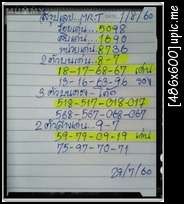 MUMMY
สรุปเลข MRT 1/8/60
ร้อยเด่น 5098
สิบเด่น 1690
หน่วยเด่น 8736
2 ตัวบน 8-7
18-17-68-67 เด่น
13-16-63-96 รอง
3 ตัวบนตรง-โต๊ด
518-517-018-017
568-567-068-067
2 ตัวล่างเด่น 9-7
59-79-09-19 เด่น
75-97-70-71
29/7/60
[486x600] upic.me